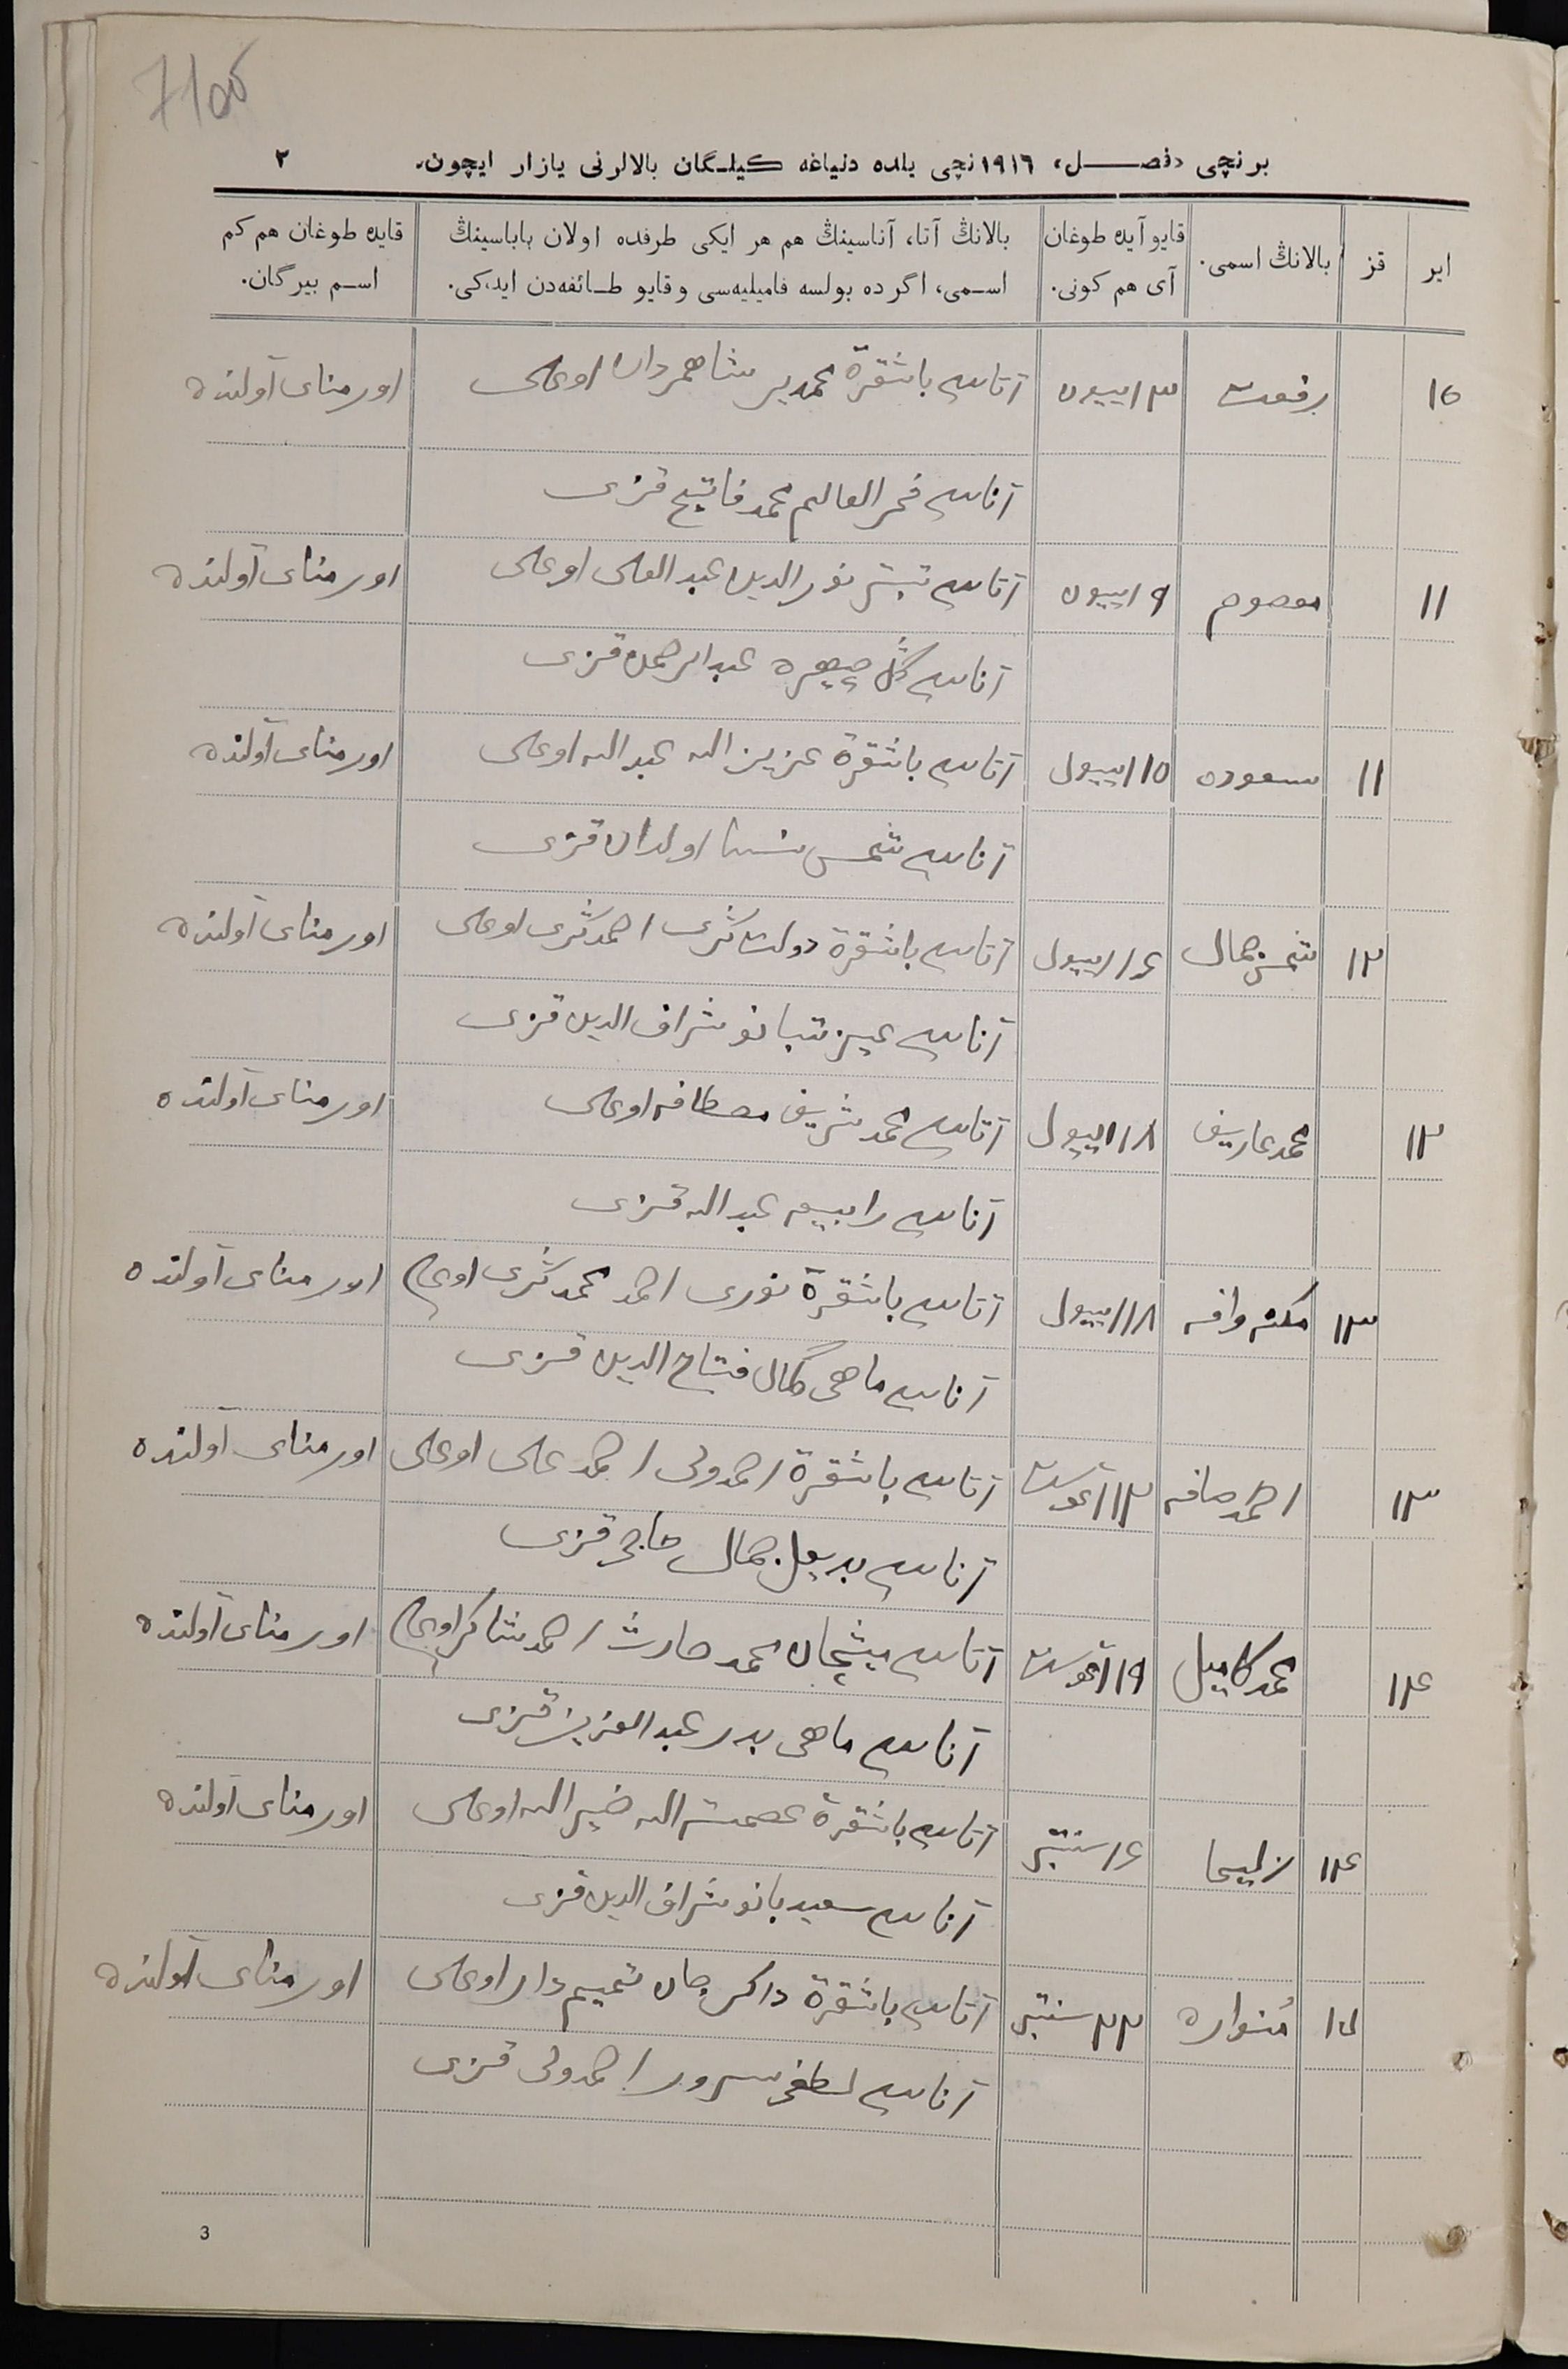 7100
برنچی «فصل» ١٩١٦نچی یلده دنیاغه کیلگان بالالرنی یازار ایچون. ٢
ایر | قز | بالانڭ اسمی. | قایو آیده طوغان آی هم کونی. | بالانڭ آتا، آناسینڭ هم هر ایکی طرفده اولان باباسینڭ اسمی، اگرده بولسه فامیلیه‌سی و قایو طائفه‌دن ایدکی. | قایده طوغان هم کم اسم بیرگان.
١٥ | رفعت | ١٣ ییون | آتاسی باشقرة محمدیر شاهمردان اوغلی | اورمنای آولنده
آناسی فخرالعالم محمد فاتیح قزی
١١ | معصوم | ١٩ ییون | آتاسی تبتر نورالدین عبدالعلی اوغلی | اورمنای آولنده
آناسی گل چیهره عبدالرحمن قزی
١١ | سعوده | ١١٥ ییول | آتاسی باشقرة عزیزالله عبدالله اوغلی | اورمنای آولنده
آناسی شمس نسا اولدان قزی
١٢ | شمس جمال | ١١٦ ییول | آتاسی باشقرة دولتشکری احمدشکری اوغلی | اورمنای آولنده
آناسی عیزتبانو شراف الدین قزی
١٢ | محمد عاریف | ١١٨ ییول | آتاسی محمد شریف مصطافه اوغلی | اورمنای آولنده
آناسی رابیعه عبدالله قزی
١٣ | ١١٨ ییول | آتاسی باشقرة نوری احمد محمد شکری اوغلی | اورمنای آولنده
آناسی ماهی کمال فتتاح الدین قزی
١٣ | احمد صافه | ١١٢ آغوست | آتاسی باشقرة احمدولی احمد علی اوغلی | اورمنای آولنده
آناسی بدیعل جمال حاجی قزی
١٤ | محمد کامیل | ١١٩ آغوست | آتاسی میشچان محمد حارث احمد شاکر اوغلی | اورمنای آولنده
آناسی ماهی بدر عبدالعزیز قزی
١٤ | زلیحا | ٦ سنتبر | آتاسی باشقرة عصمت الله خیرالله اوغلی | اورمنای آولنده
آناسی سعید بانو شراف الدین قزی
مُنواره | ٢٣ سنتبر | آتاسی باشقرة داکرجان تمیم دار اوغلی | اورمنای آولنده
آناسی لطفی سرور احمدولی قزی
3